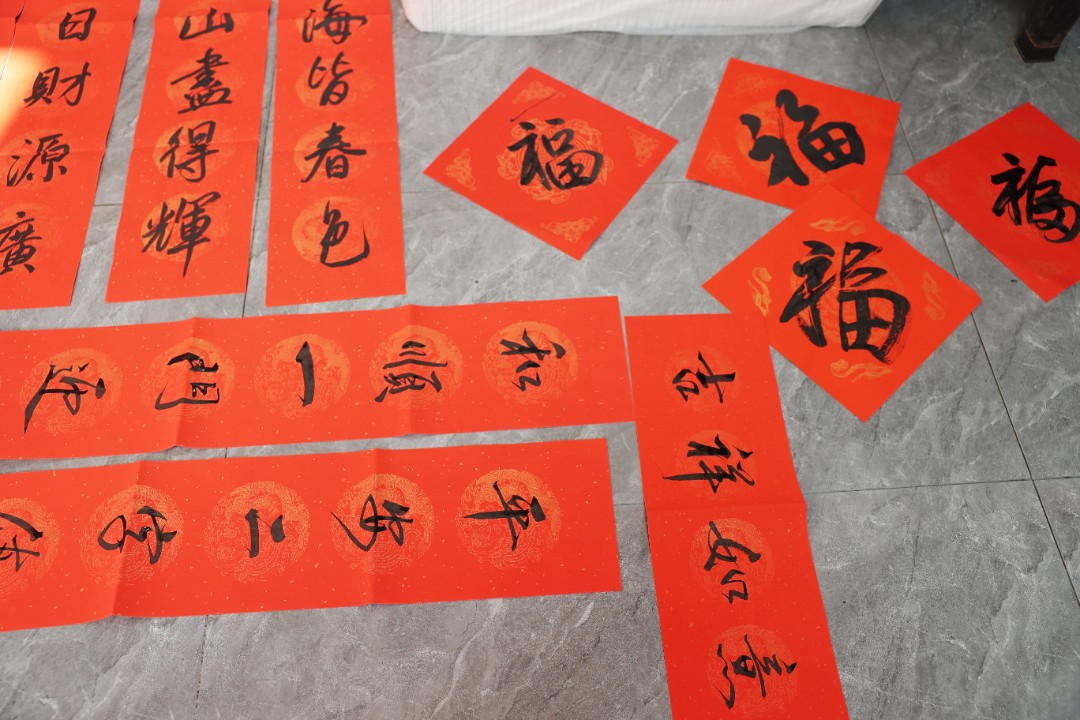 日財源廣
山盡得輝
海皆春色
福
福
福
福
和順一門迎
平安二字
吉祥如意